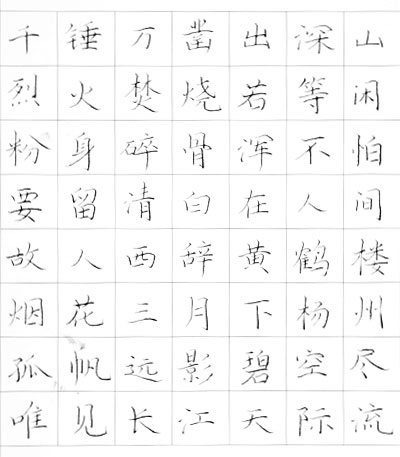 千锤万凿出深山
烈火焚烧若等闲
粉身碎骨浑不怕
要留清白在人间
故人西辞黄鹤楼
烟花三月下杨州
孤帆远影碧空尽
唯见长江天际流